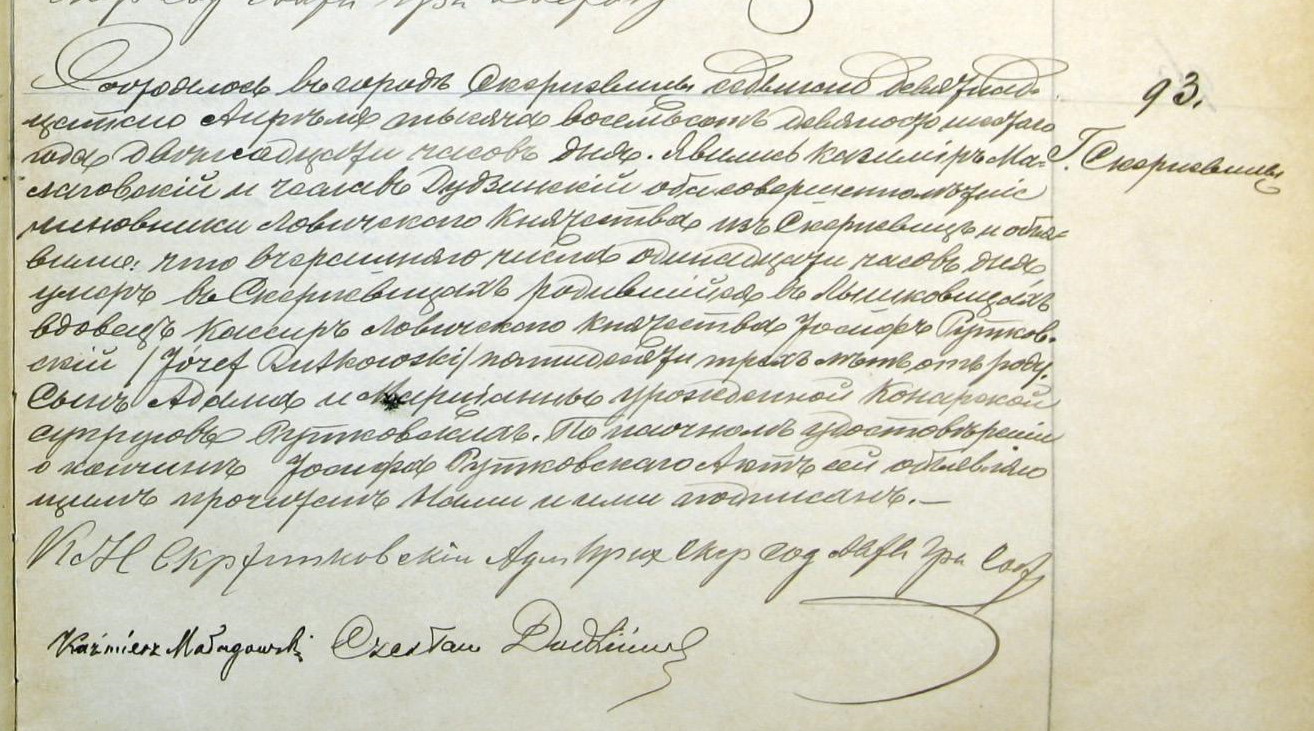 93.
Г. Скерневицы
Состоялось въ городѣ Скерневицы седьмаго девятнад-
цатаго Апрѣля тысяча восемьсотъ девяносто шестаго
года двѣнадцати часовъ дня. Явились Казиміръ Ма-
лаговскій и Чеславъ Дудзинскій оба совершеннолѣтніе
чиновники Ловичскаго Княжества изъ Скерневицъ и объя-
вили: что вчерашняго числа одинадцати часовъ дня
умеръ въ Скерневицахъ родившійся въ Лышковицахъ
вдовецъ Кассиръ Ловичскаго Княжества Іосифъ Рутков-
скій /Józef Rutkowski/ пятидесяти трехъ лѣтъ отъ роду,
Сынъ Адама и Маріанны урожденной Конарской
супруговъ Рутковскихъ. По наочномъ удостовѣреніи
о кончинѣ Іосифа Рутковскаго Актъ сей объявляю
щимъ прочитанъ Нами и ими подписанъ. —
Адм Прих Скер
Kazimierz Małagowski Czesław Dudziński